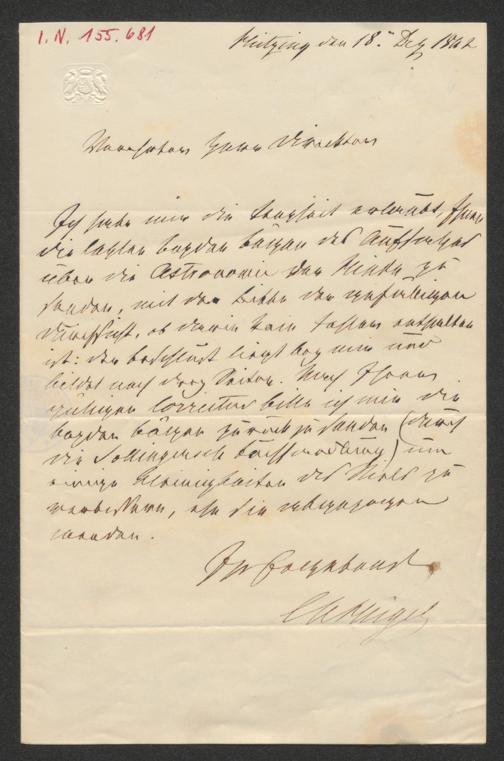 I.N. 155.681
Hietzing den 18. Dez 1862
Verehrter Herr Direktor
Ich habe mir die Freyheit erlaubt, Ihnen
die letzten beyden Bögen des Aufsatzes
über die Astronomie der Hindu zu
senden, mit der Bitte der gefälligen
Durchsicht, ob darin kein Fehler enthalten
ist: der Beschluss liegt bey mir und
bildet noch drey Seiten. Nach Ihrer
gütigen Correctur bitte ich mir die
beyden Bögen zurück zu senden (durch
die Sollingersche Buchhandlung) um
einige Kleinigkeiten des Styles zu
verbessern, ehe sie abgezogen
werden.
Ihr Ergebenst
CHügel